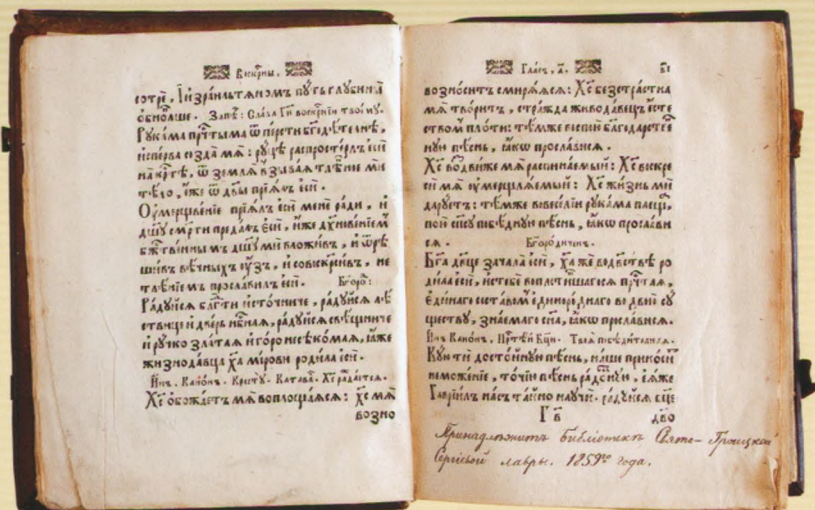 Вꙋскр҇ны.
сотрѐ, І҆и҆зра́ильтѧномъ пꙋ́ть глꙋбины̀
ѡ҆бноѧ́ше. Запѣ́: Сла́ва Гдⷭ҇и воскрⷭ҇нїю твоемꙋ̀.
Рꙋка́ма прⷱ҇тыма ѿ пе́рсти бг҃одѣ́телнѣ,
и҆спе́рва созда́ мѧ: рꙋ́цѣ распросте́рлъ є҆сѝ
на крⷭ҇тѣ̀, ѿ землѧ̀ взыва́ѧ тлѣ́нное моѐ
тѣ́ло, є҆́же ѿ дв҃ы прїѧ́лъ є҆сѝ.
Оу҆мерщвле́нїе прїѧ́лъ є҆сѝ менѐ ра́ди, и҆
дш҃ꙋ сме́рти преда́лъ є҆сѝ, и҆́же дх҃нове́нїемъ
бжⷭ҇твеннымъ дш҃ꙋ мѝ вложи́въ, и҆ ѿрѣ
ши́въ вѣ́чныхъ оу҆́зъ, и҆ совоскр҃си́въ, не
тлѣ́нїемъ просла́вилъ є҆сѝ. Бг҃оро:
Ра́дꙋйсѧ блгⷣти и҆сто́чниче, ра́дꙋйсѧ лѣ́
ствице и҆ две́рь нбⷭ҇наѧ, ра́дꙋйсѧ свѣ́щниче
и҆ рꙋ́чко злата́ѧ и҆ горо̀ несѣко́маѧ, ꙗ҆́же
жизнода́вца Хⷭ҇а мі́рови родила̀ є҆сѝ.
И҆́нъ. Кано́нъ. Крⷭ҇тꙋ̀. Катава́. Хⷭ҇съ ражда́етсѧ.
Хⷭ҇съ ѡ҆божа́етъ мѧ̀ воплоща́ѧсѧ: Хⷭ҇съ мѧ̀
возно
Гла́съ, а҃.
в҃і
возно́ситъ смирѧ́ѧсѧ: Хⷭ҇съ безстра́стна
мѧ̀ твори́тъ, стра́жда живода́вецъ є҆сте
ство́мъ пло́ти: тѣ́мже воспою̀ благода́рствен
нꙋю пѣ́снь, ꙗ҆́кѡ просла́висѧ.
Хⷭ҇съ возво́дитъ мѧ̀ распина́емый: Хⷭ҇съ воскре
си́ мѧ оу҆мерщвлѧ́емый: Хⷭ҇съ жи́знь мѝ
да́рꙋетъ: тѣ́мже весе́лїи рꙋка́ма плещꙋ̀,
пою̀ сп҃сꙋ побѣ́днꙋю пѣ́снь, ꙗ҆́кѡ просла́ви
сѧ. Бг҃оро́диченъ.
Бг҃а дв҃це зачала̀ є҆сѝ, Хⷭ҇а же во дв҃ствѣ ро
дила̀ є҆сѝ, и҆з̾ тебє̀ вопло́щшагосѧ прⷱ҇таѧ,
Є҆ди́наго соста́вомъ є҆диноро́днаго во двою̀ сꙋ
ществꙋ̀, зна́емаго сн҃а, ꙗ҆́кѡ просла́висѧ.
И҆́нъ Кано́нъ. Прⷱ҇тѣй Бцⷣы. Твоѧ̀ побѣди́тельнаѧ.
Кꙋ́ю тѝ досто́йнꙋю пѣ́снь, на́ше принесе́тъ
неможе́нїе, то́чїю пѣ́снь ра́достнꙋю, є҆ѧ́же
Гаврїи́лъ на́съ та́йнѡ наꙋчѝ. ра́дꙋйсѧ бцⷣе
Г в҃
дв҃о
Принадлежитъ библіотекѣ Свято-Троицкой
Сергіевой лавры. 1859го года.